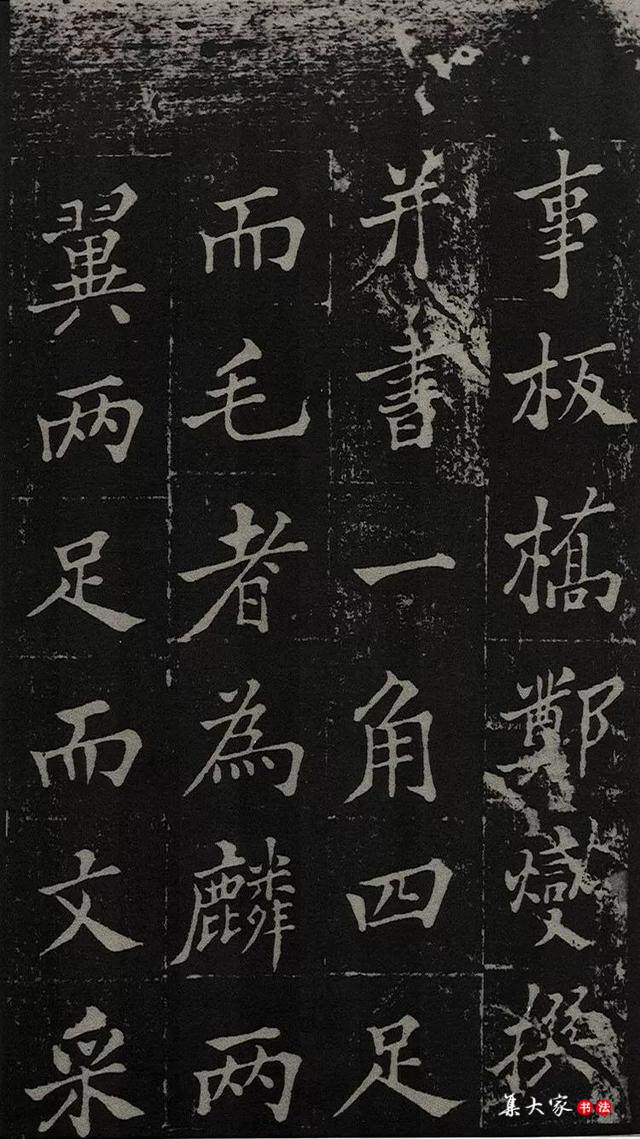 事板橋鄭燮撰
并書一角四足
而毛者為麟两
翼两足而文采
集大家书法